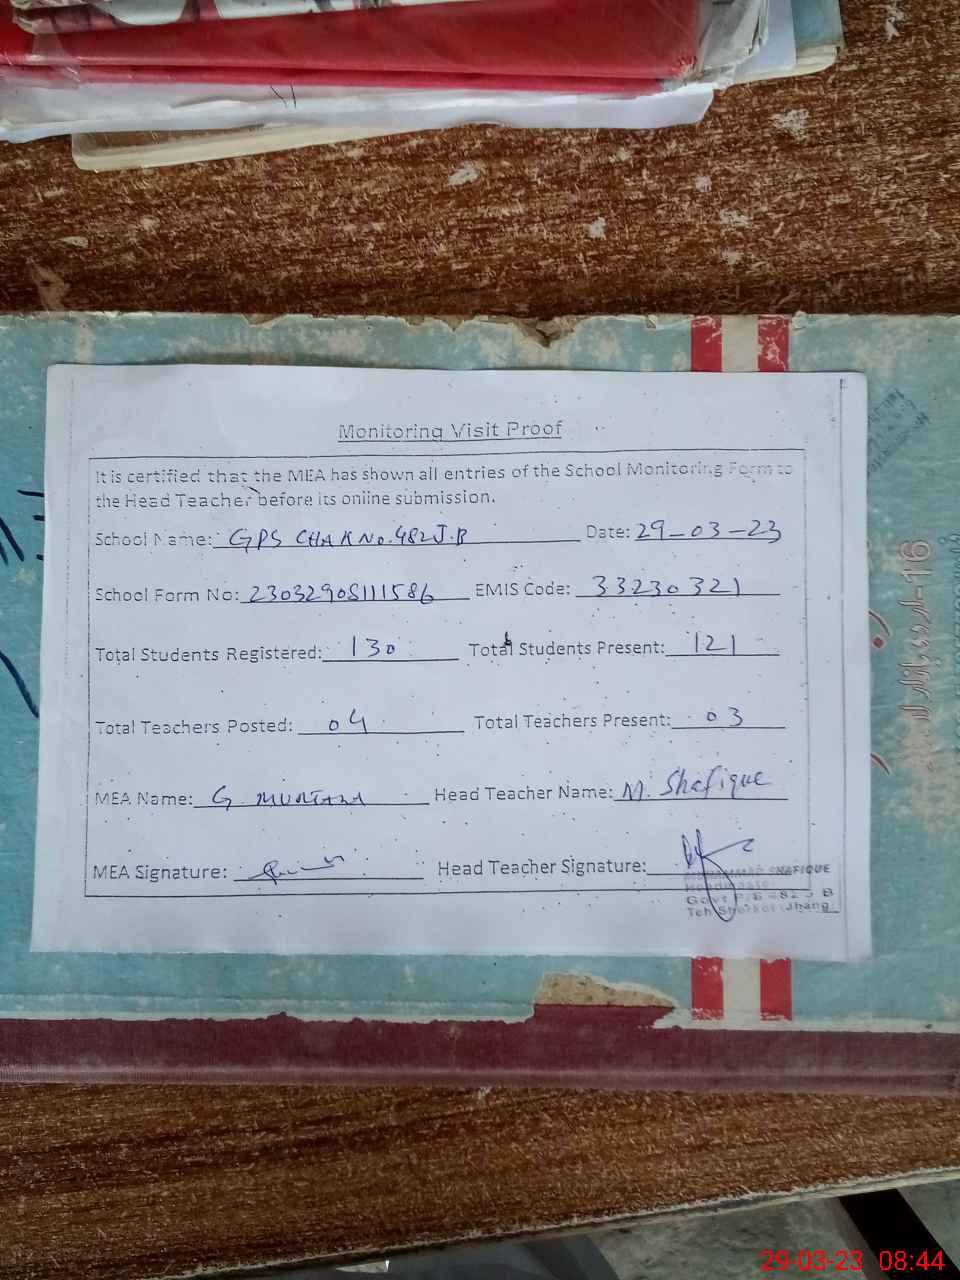 Monitoring Visit Proof
It is certified that the MEA has shown all entries of the School Monitoring Form to
the Head Teacher before its online submission.
School Name: GPS CHAK No. 482 J.B Date: 29-03-23
School Form No: 23032908111586 EMIS Code: 33230321
Total Students Registered: 130 Total Students Present: 121
Total Teachers Posted: 04 Total Teachers Present: 03
MEA Name: G. MURTAZA Head Teacher Name: M. Shafique
MEA Signature: Head Teacher Signature:
MUHAMMAD SHAFIQUE
Headmaster
Govt P/S 482 J B
Teh Shorkot (Jhang)
16-اردو بازار لاہور
29-03-23 08:44